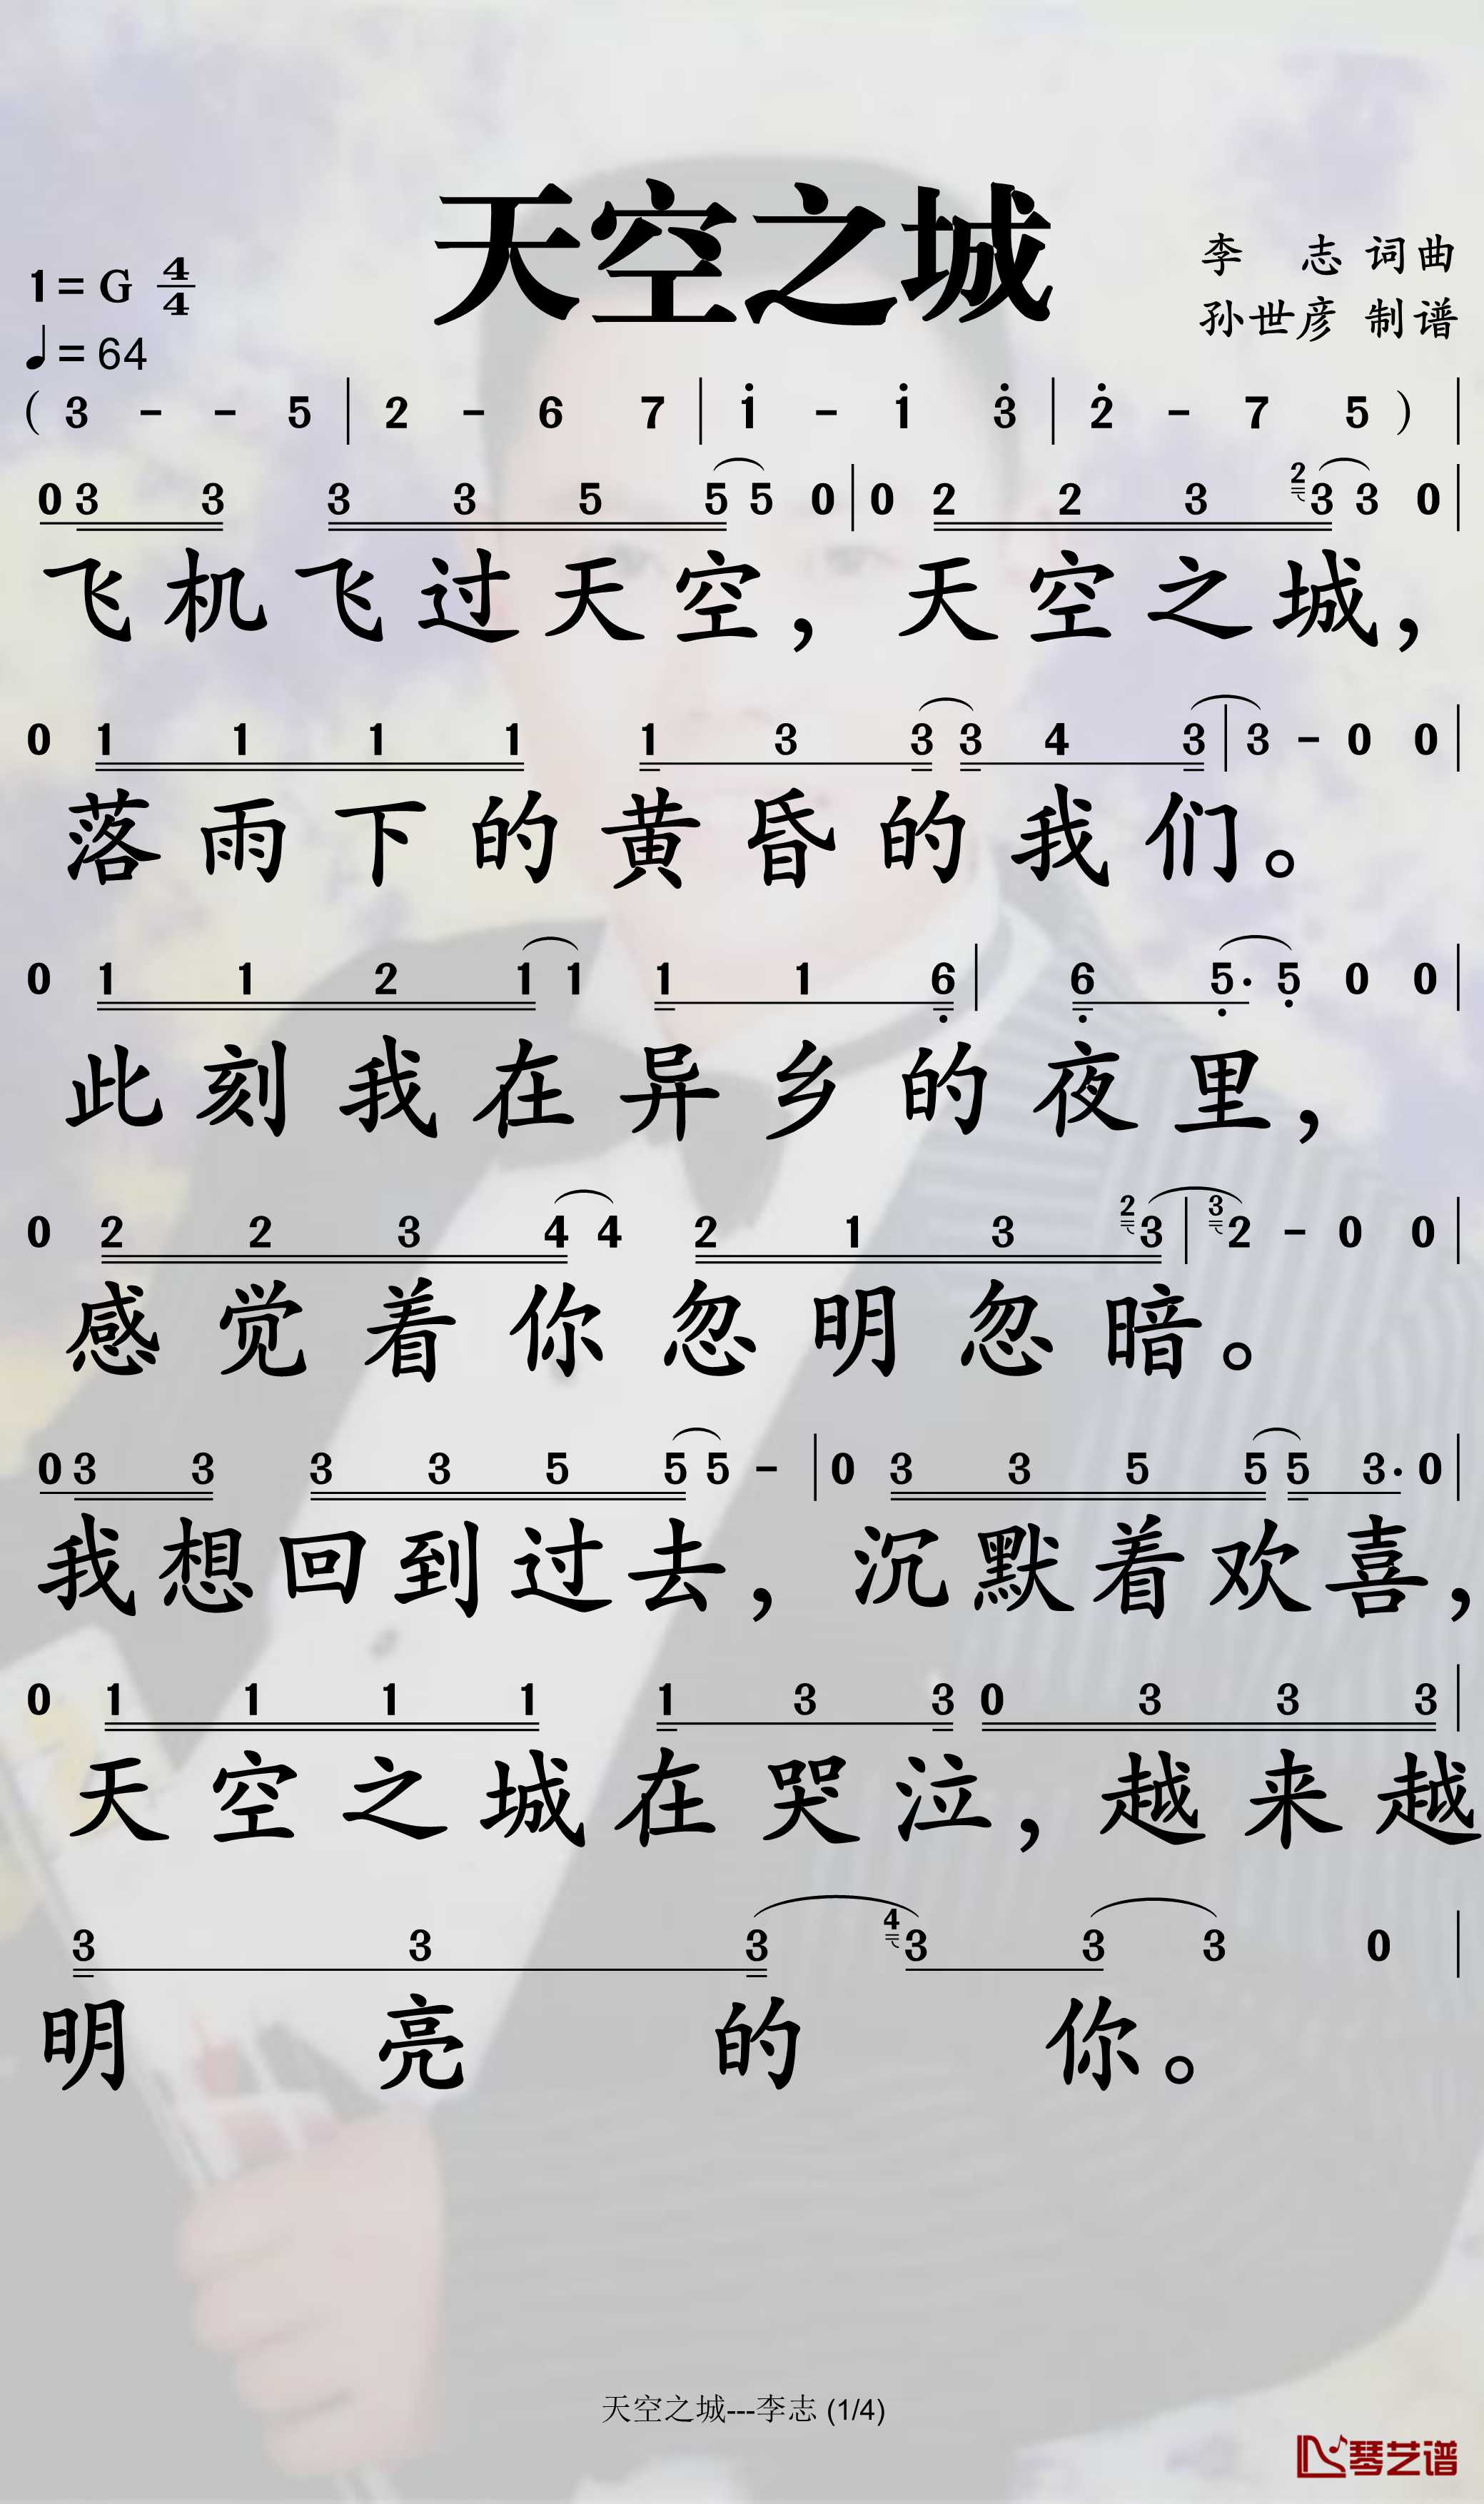 天空之城
李 志 词曲
1=G 4/4
孙世彦 制谱
♩=64
( 3 - - 5 | 2 - 6 7 | 1̇ - 1̇ 3̇ | 2̇ - 7 5 ) |
0 3 3 3 3 5 5 5 0 | 0 2 2 3 2 3 3 0 |
飞机飞过天空，天空之城，
0 1 1 1 1 1 3 3 3 4 3 | 3 - 0 0 |
落雨下的黄昏的我们。
0 1 1 2 1 1 1 1 6̣ | 6̣ 5̣· 5̣ 0 0 |
此刻我在异乡的夜里，
0 2 2 3 4 4 2 1 3 2 3 | 3 2 - 0 0 |
感觉着你忽明忽暗。
0 3 3 3 3 5 5 5 - | 0 3 3 5 5 5 3· 0 |
我想回到过去，沉默着欢喜，
0 1 1 1 1 1 3 3 0 3 3 3 |
天空之城在哭泣，越来越
3 3 3 4 3 3 3 0 |
明亮的你。
天空之城---李志 (1/4)
琴艺谱